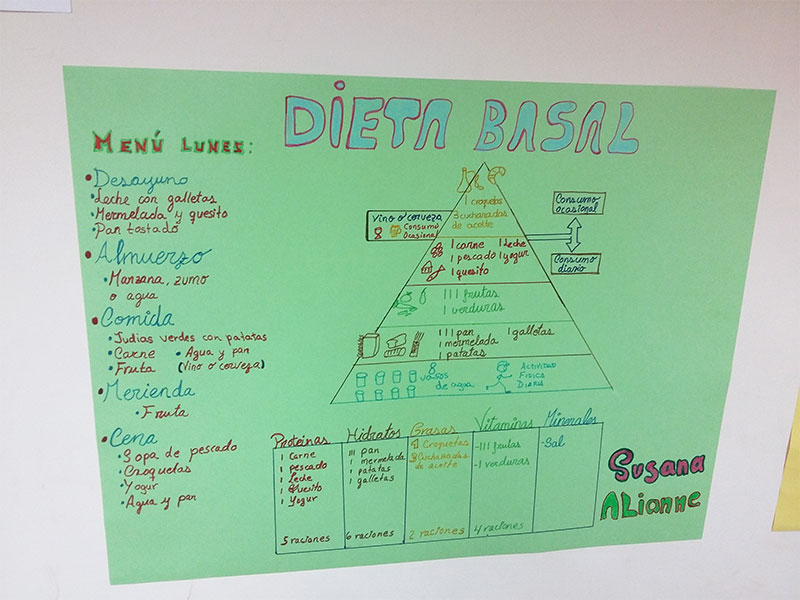 DIETA BASAL
MENÚ LUNES:
• Desayuno
• Leche con galletas
• Mermelada y quesito
• Pan tostado
• Almuerzo
• Manzana, zumo
o agua
• Comida
• Judias verdes con patatas
• Carne • Agua y pan
• Fruta (Vino o cerveza)
• Merienda
• Fruta
• Cena
• Sopa de pescado
• Croquetas
• Yogur
• Agua y pan
1 croquetas
3 cucharadas
de aceite
Vino o cerveza
Consumo
Ocasional
Consumo
Ocasional
Consumo
diario
1 carne 1 Leche
1 pescado 1 yogur
1 quesito
III frutas
1 verduras
III pan 1 galletas
1 mermelada
1 patatas
8
vasos
de agua
ACTIVIDAD
FISICA
DIARIA
Proteinas
1 carne
1 pescado
1 Leche
1 Quesito
1 Yogur
5 raciones
Hidratos
III pan
1 mermelada
1 patatas
1 galletas
6 raciones
Grasas
Croquetas
Cucharadas
de aceite
2 raciones
Vitaminas
-III frutas
-1 verduras
4 raciones
Minerales
-Sal
Susana
ALionne